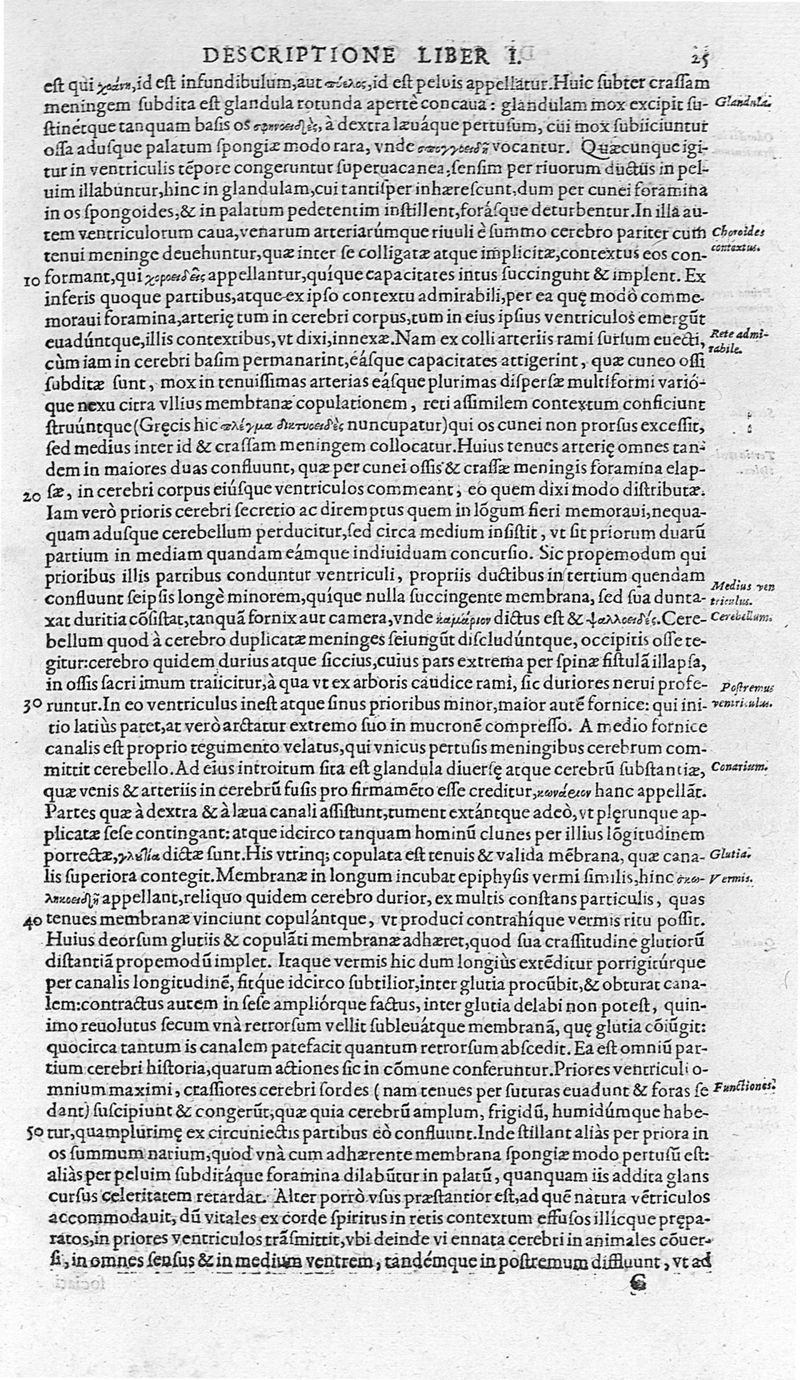 DESCRIPTIONE LIBER I. 25
est qui χοάνη, id est infundibulum, aut πύελος, id est peluis appellatur. Huic subter crassam
meningem subdita est glandula rotunda apertè concaua: glandulam mox excipit su-
Glandula.
stinétque tanquam basis os σφηνοειδὲς, à dextra læuáque pertusum, cui mox subiiciuntur
ossa adusque palatum spongiæ modo rara, vnde σπογγοειδῆ vocantur. Quæcunque igi-
tur in ventriculis tẽpore congeruntur superuacanea, sensim per riuorum ductus in pel-
uim illabuntur, hinc in glandulam, cui tantisper inhærescunt, dum per cunei foramina
in os spongoides, & in palatum pedetentim instillent, forásque deturbentur. In illa au-
tem ventriculorum caua, venarum arteriarúmque riuuli è summo cerebro pariter cum
Choroides
tenui meninge deuehuntur, quæ inter se colligatæ atque implicitæ, contextus eos con-
contextus.
10 formant, qui χοροειδεῖς appellantur, quíque capacitates intus succingunt & implent. Ex
inferis quoque partibus, atque ex ipso contextu admirabili, per ea quę modò comme-
moraui foramina, arterię tum in cerebri corpus, tum in eius ipsius ventriculos emergũt
euadúntque, illis contextibus, vt dixi, innexæ. Nam ex colli arteriis rami sursum euecti,
Rete admi-
rabile.
cùm iam in cerebri basim permanarint, eásque capacitates attigerint, quæ cuneo ossi
subditæ sunt, mox in tenuissimas arterias eásque plurimas dispersæ multiformi varió-
que nexu citra vllius membranæ copulationem, reti assimilem contextum conficiunt
struúntque (Gręcis hic πλέγμα δικτυοειδὲς nuncupatur) qui os cunei non prorsus excessit,
sed medius inter id & crassam meningem collocatur. Huius tenues arterię omnes tan-
dem in maiores duas confluunt, quæ per cunei ossis & crassæ meningis foramina elap-
20 sæ, in cerebri corpus eiúsque ventriculos commeant, eo quem dixi modo distributæ.
Iam verò prioris cerebri secretio ac diremptus quem in lõgum fieri memoraui, nequa-
quam adusque cerebellum perducitur, sed circa medium insistit, vt sit priorum duarũ
partium in mediam quandam eámque indiuiduam concursio. Sic propemodum qui
prioribus illis partibus conduntur ventriculi, propriis ductibus in tertium quendam
Medius ven
confluunt seipsis longè minorem, quíque nulla succingente membrana, sed sua dunta-
triculus.
xat duritia cõsistat, tanquã fornix aut camera, vnde καμάριον dictus est & ψαλλοειδές. Cere-
Cerebellum.
bellum quod à cerebro duplicatæ meninges seiungũt discludúntque, occipitis osse te-
gitur: cerebro quidem durius atque siccius, cuius pars extrema per spinæ fistulã illapsa,
in ossis sacri imum traiicitur, à qua vt ex arboris caudice rami, sic duriores nerui profe-
Postremus
30 runtur. In eo ventriculus inest atque sinus prioribus minor, maior autẽ fornice: qui ini-
ventriculus.
tio latiùs patet, at verò arctatur extremo suo in mucronẽ compresso. A medio fornice
canalis est proprio tegumento velatus, qui vnicus pertusis meningibus cerebrum com-
mittit cerebello. Ad eius introitum sita est glandula diuersę atque cerebrũ substantiæ,
Conarium.
quæ venis & arteriis in cerebrũ fusis pro firmamẽto esse creditur, κωνάριον hanc appellãt.
Partes quæ à dextra & à læua canali assistunt, tument extántque adeò, vt plęrunque ap-
plicatæ sese contingant: atque idcirco tanquam hominũ clunes per illius lõgitudinem
porrectæ, γλουτία dictæ sunt. His vtrinq; copulata est tenuis & valida mẽbrana, quæ cana-
Glutia.
lis superiora contegit. Membranæ in longum incubat epiphysis vermi similis, hinc σκω-
Vermis.
ληκοειδῆ appellant, reliquo quidem cerebro durior, ex multis constans particulis, quas
40 tenues membranæ vinciunt copulántque, vt produci contrahíque vermis ritu possit.
Huius deorsum glutiis & copulãti membranæ adhæret, quod sua crassitudine glutiorũ
distantiã propemodũ implet. Itaque vermis hic dum longiùs extẽditur porrigitúrque
per canalis longitudinẽ, fítque idcirco subtilior, inter glutia procũbit, & obturat cana-
lem: contractus autem in sese ampliórque factus, inter glutia delabi non potest, quin-
imo reuolutus secum vnà retrorsum vellit subleuátque membranã, quę glutia cõiũgit:
quocirca tantum is canalem patefacit quantum retrorsum abscedit. Ea est omniũ par-
tium cerebri historia, quarum actiones sic in cõmune conferuntur. Priores ventriculi o-
mnium maximi, crassiores cerebri sordes (nam tenues per suturas euadunt & foras se
Functiones.
dant) suscipiunt & congerũt, quæ quia cerebrũ amplum, frigidũ, humidúmque habe-
50 tur, quamplurimę ex circuniectis partibus eò confluunt. Inde stillant aliàs per priora in
os summum narium, quod vnà cum adhærente membrana spongiæ modo pertusũ est:
aliàs per peluim subditáque foramina dilabũtur in palatũ, quanquam iis addita glans
cursus celeritatem retardat. Alter porrò vsus præstantior est, ad quẽ natura vẽtriculos
accommodauit, dũ vitales ex corde spiritus in retis contextum effusos illícque prępa-
ratos, in priores ventriculos trãsmittit, vbi deinde vi ennata cerebri in animales cõuer-
si, in omnes sensus & in medium ventrem, tandémque in postremum diffluunt, vt ad
C